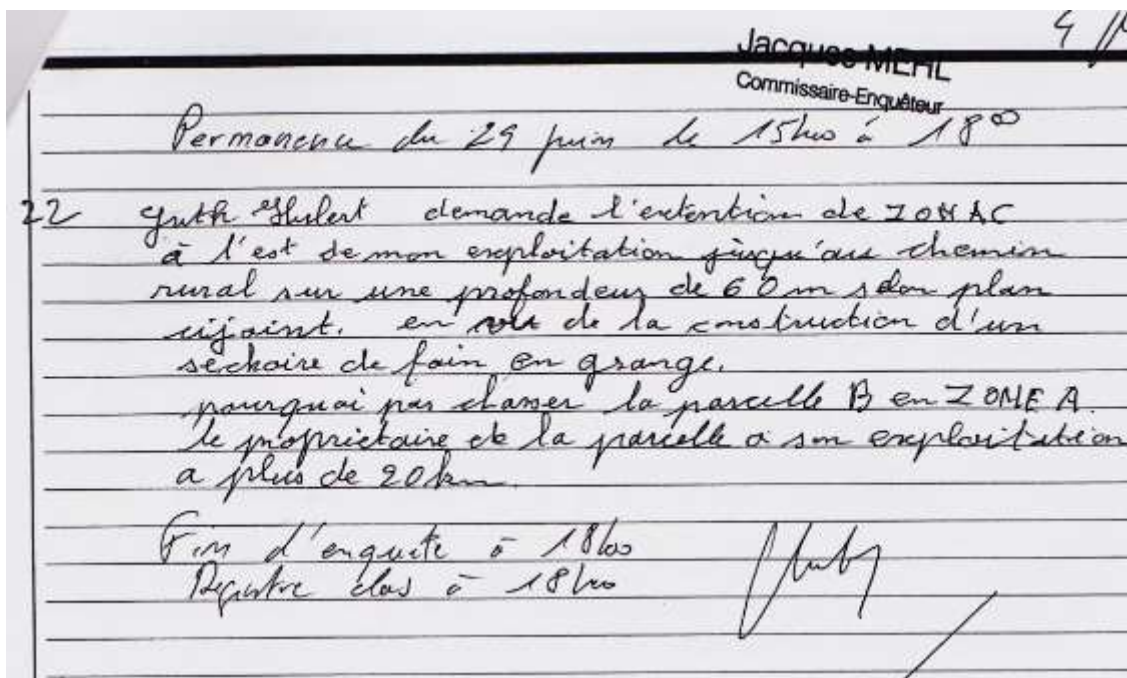 4
Jacques MEHL
Commissaire-Enquêteur
Permanence du 29 juin de 15h00 à 18⁰⁰
22 Guth Hubert demande l'extention de ZONAC
à l'est de mon exploitation jusqu'au chemin
rural sur une profondeur de 60m selon plan
cijoint. en vue de la construction d'un
sechoire de foin en grange.
pourquoi pas classer la parcelle B en ZONE A.
le propriétaire de la parcelle a son exploitation
a plus de 20km.
Fin d'enquête à 18h00
Registre clos à 18h00